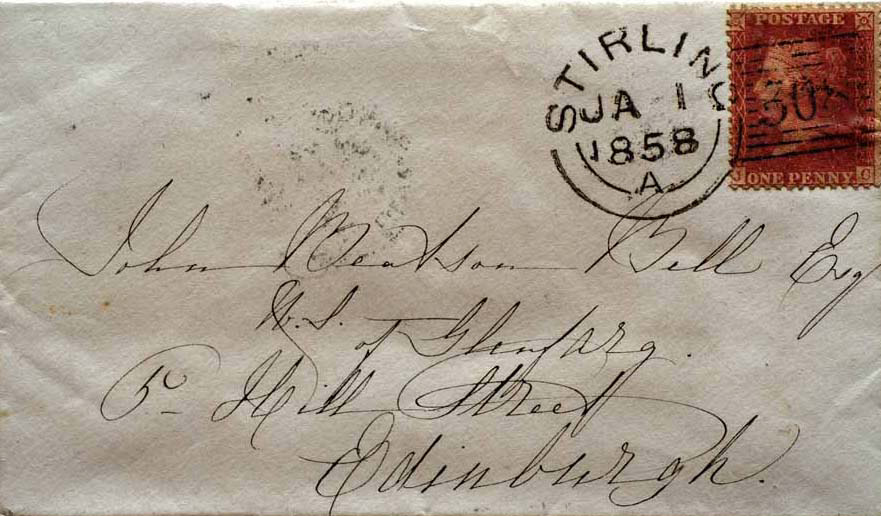 POSTAGE
ONE PENNY
STIRLING
JA 1
1858
A
John Beatson Bell Esq
W.S.
of Glenfarg.
5 Hill Street
Edinburgh.